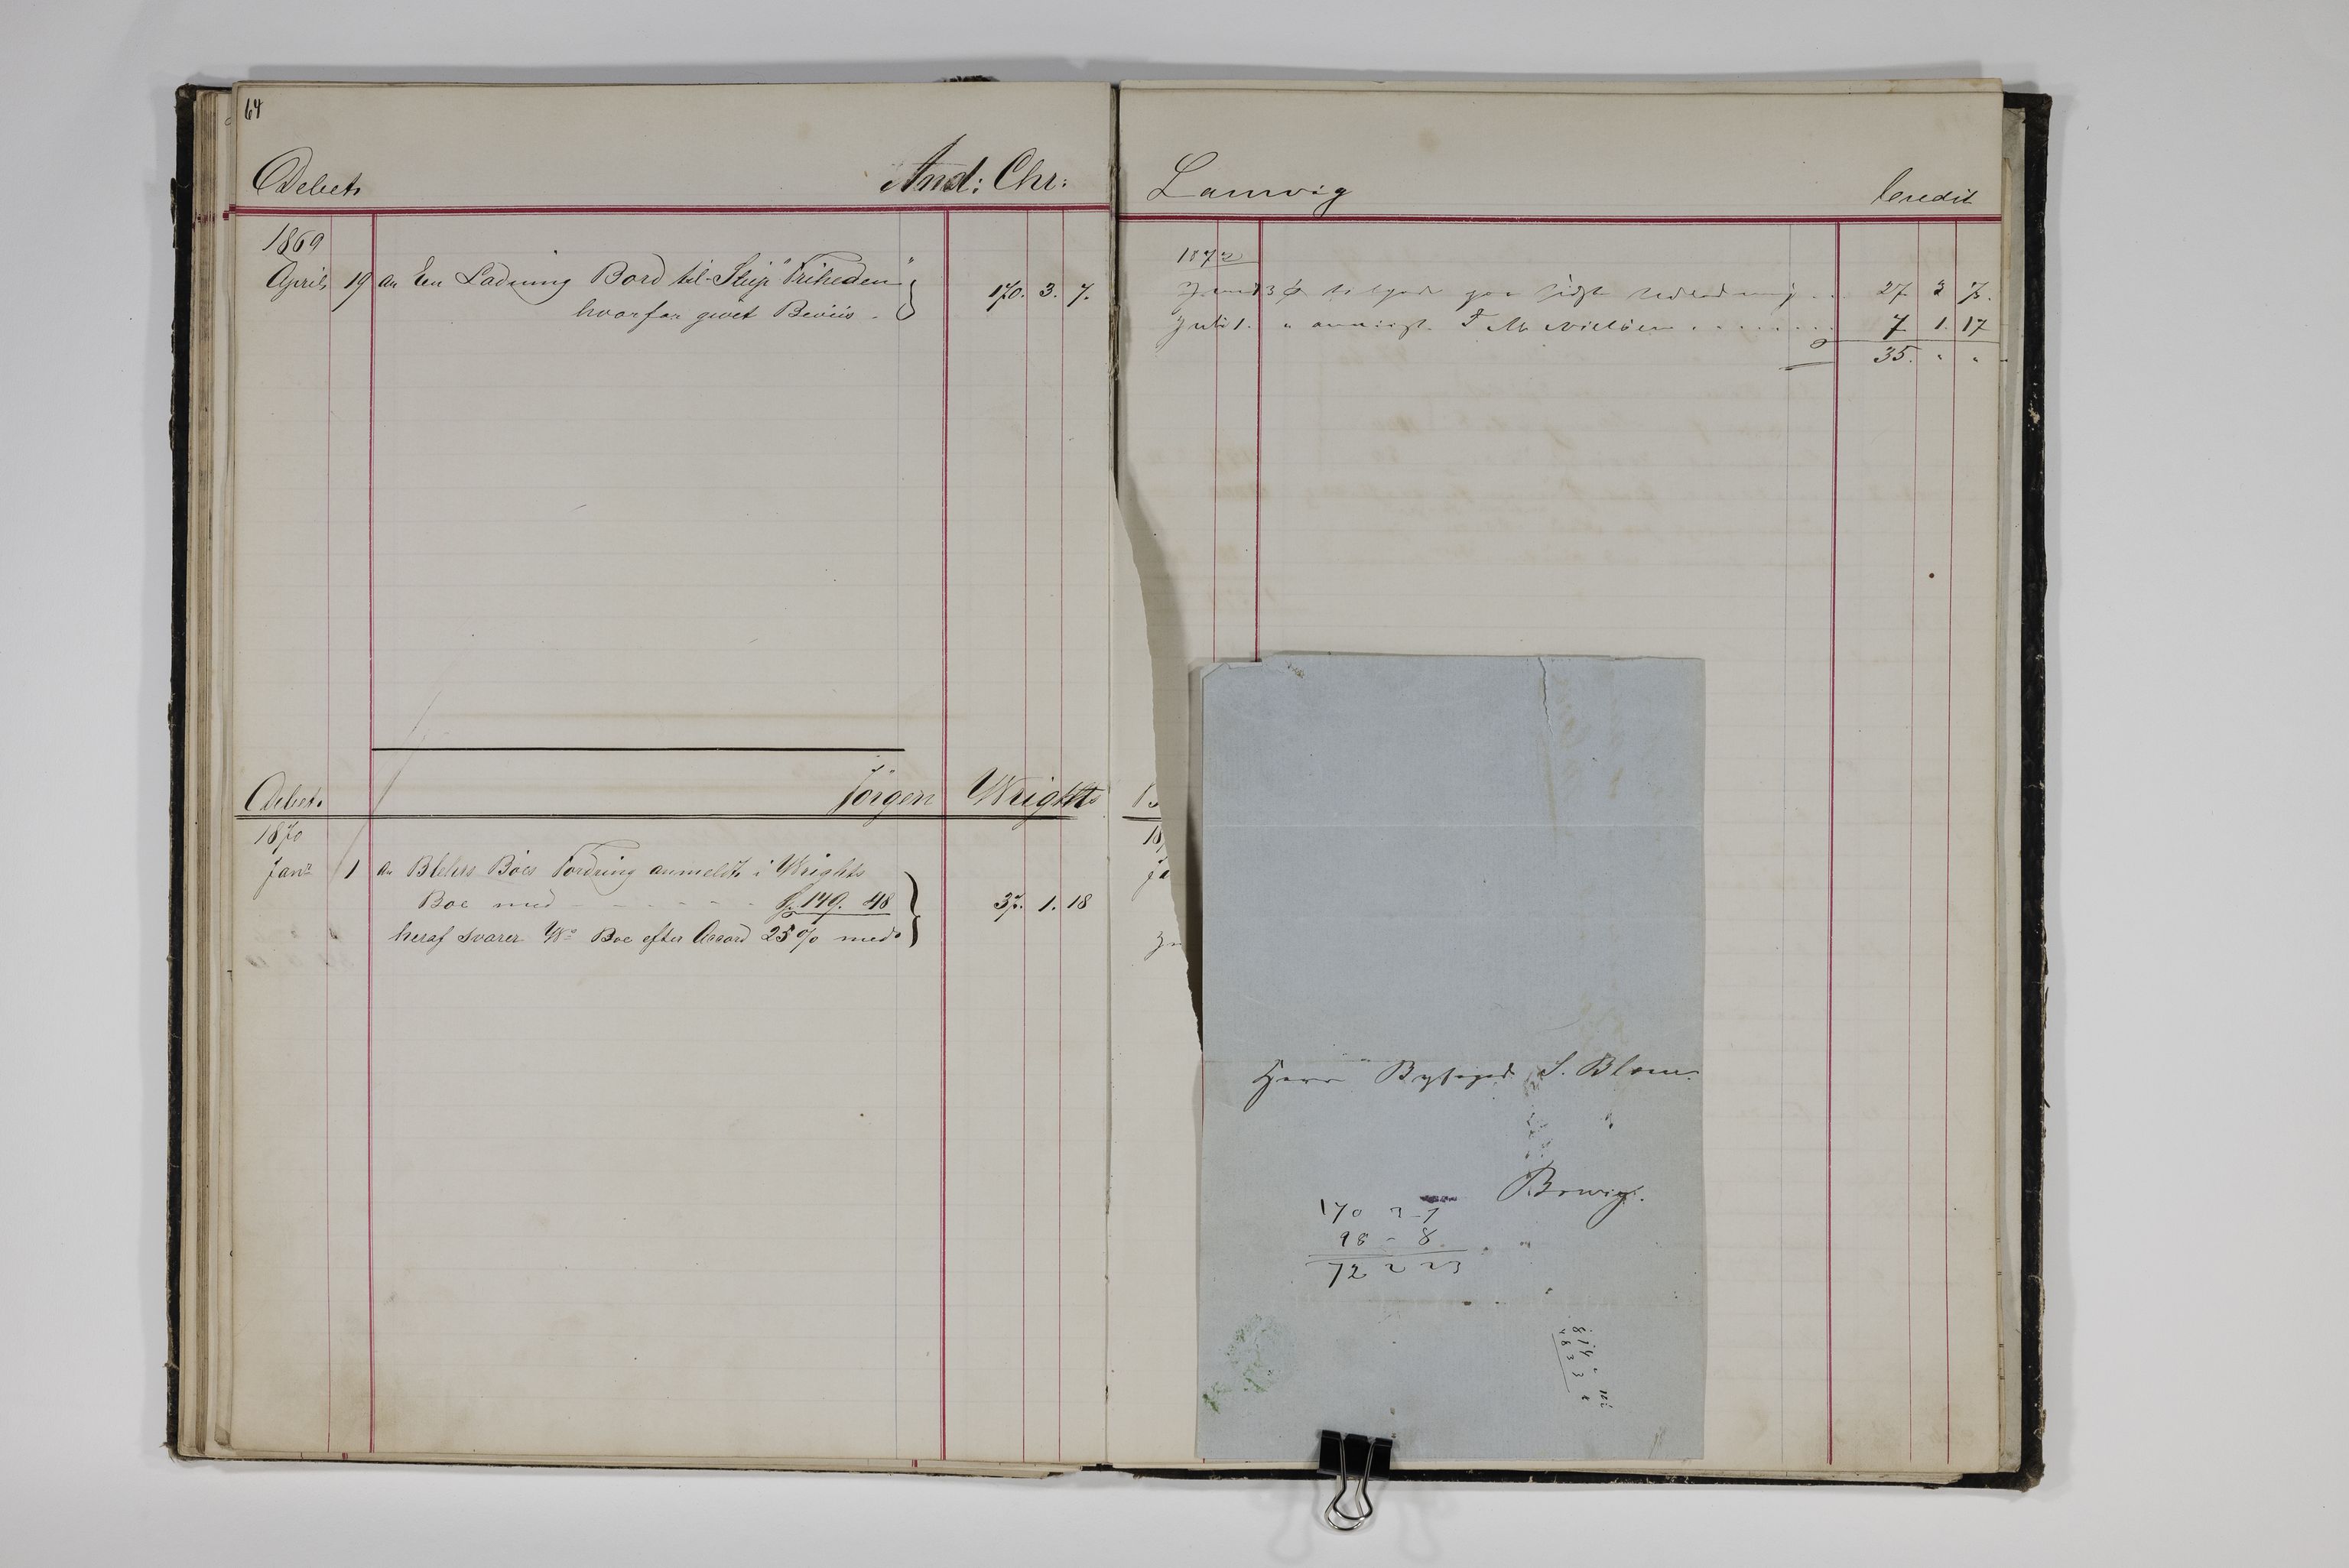 64
Debet And: Chr:
1869
April 19 an En Ladning Bord til Slup "Friheden"
hvorfor givet Beviis - 170. 3. 7.
Debet Jörgen Wrights
1870
Janr 1 an Blehrs Boes Fordring anmeldt i Wrights
Boe med - - - - - - 149. 48
heraf svarer Ws Boe efter Accord 25% med 37. 1. 18
Lamvig Credit
1872
27 3 7.
Juli 1. " F M Nielsen . . . . . . . . 7 1. 17
35. " "
Herr Byfoged S. Blom.
Brevig.
170 3-7
98 - 8
72 2 23